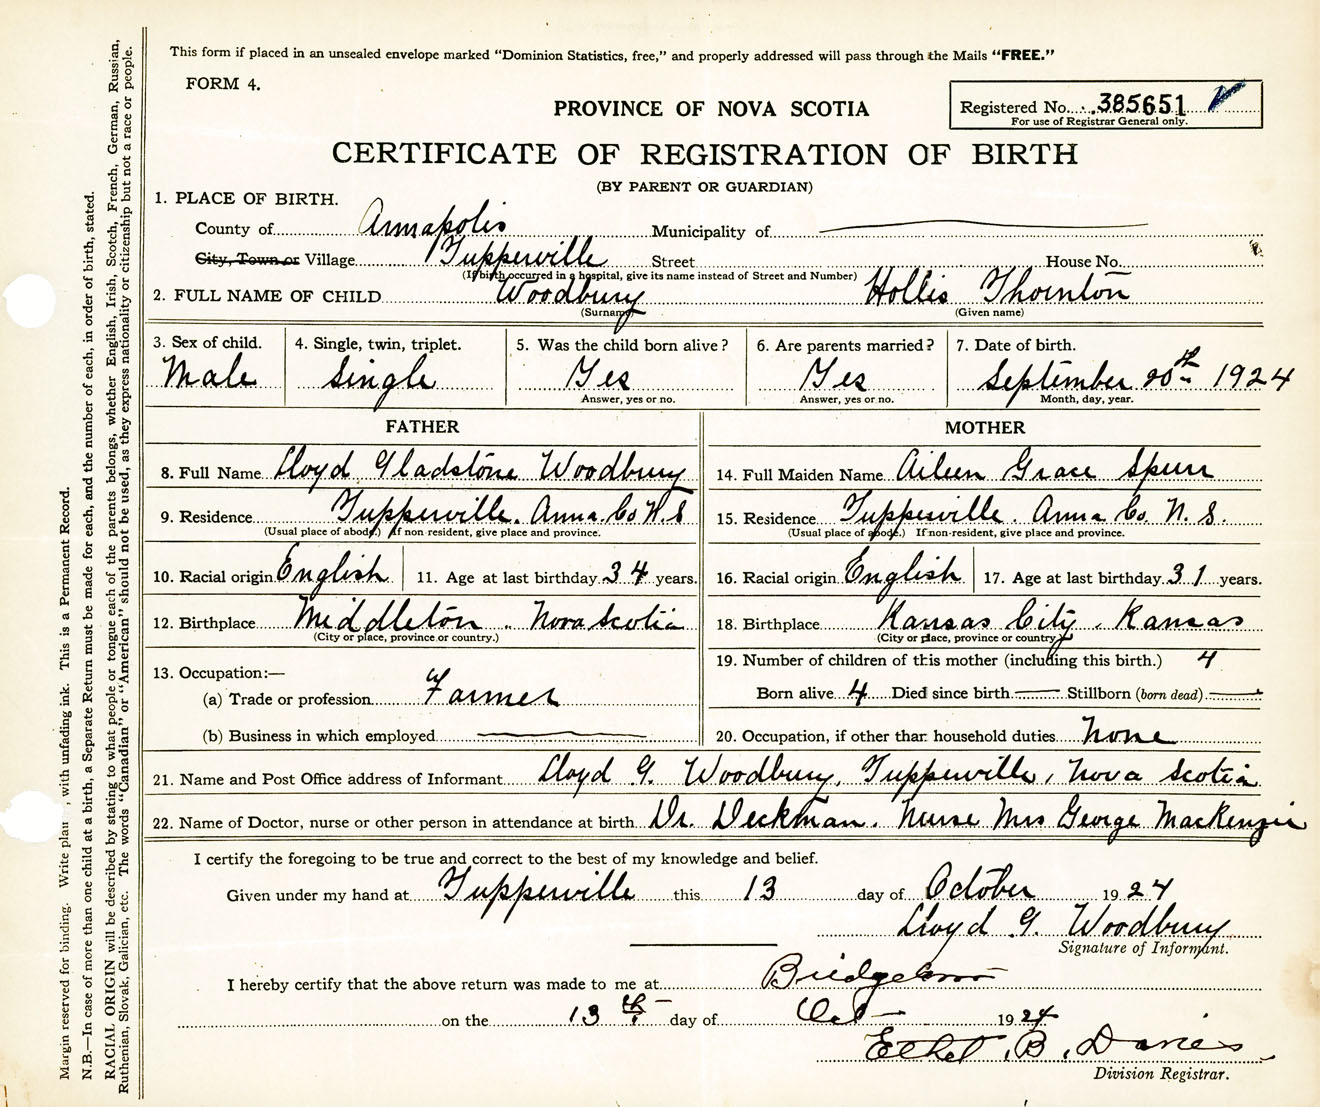 This form if placed in an unsealed envelope marked "Dominion Statistics, free," and properly addressed will pass through the Mails "FREE."
FORM 4.
PROVINCE OF NOVA SCOTIA
Registered No. 385651
For use of Registrar General only.
CERTIFICATE OF REGISTRATION OF BIRTH
(BY PARENT OR GUARDIAN)
1. PLACE OF BIRTH.
County of Annapolis Municipality of
City, Town or Village Tupperville Street House No.
(If birth occurred in a hospital, give its name instead of Street and Number)
2. FULL NAME OF CHILD Woodbury Hollis Thornton
(Surname) (Given name)
3. Sex of child. 4. Single, twin, triplet. 5. Was the child born alive? 6. Are parents married? 7. Date of birth.
Male Single Yes Yes September 20th 1924
Answer, yes or no. Answer, yes or no. Month, day, year.
FATHER MOTHER
8. Full Name Lloyd Gladstone Woodbury 14. Full Maiden Name Aileen Grace Spurr
9. Residence Tupperville. Anna. Co N.S 15. Residence Tupperville. Anna Co. N.S.
(Usual place of abode.) If non-resident, give place and province. (Usual place of abode.) If non-resident, give place and province.
10. Racial origin English 11. Age at last birthday 34 years. 16. Racial origin English 17. Age at last birthday 31 years.
12. Birthplace Middleton. Nova Scotia 18. Birthplace Kansas City, Kansas
(City or place, province or country.) (City or place, province or country.)
13. Occupation:— 19. Number of children of this mother (including this birth.) 4
(a) Trade or profession Farmer Born alive 4 Died since birth Stillborn (born dead)
(b) Business in which employed 20. Occupation, if other than household duties None
21. Name and Post Office address of Informant Lloyd G. Woodbury, Tupperville, Nova Scotia
22. Name of Doctor, nurse or other person in attendance at birth Dr. Deckman. Nurse Mrs George MacKenzie
I certify the foregoing to be true and correct to the best of my knowledge and belief.
Given under my hand at Tupperville this 13 day of October 1924
Lloyd G. Woodbury
Signature of Informant.
I hereby certify that the above return was made to me at Bridgetown
on the 13th day of Oct 1924
Ethel B. Davies
Division Registrar.
Margin reserved for binding. Write plain, with unfading ink. This is a Permanent Record.
N.B.—In case of more than one child at a birth, a Separate Return must be made for each, and the number of each, in order of birth, stated.
RACIAL ORIGIN will be described by stating to what people or tongue each of the parents belongs, whether English, Irish, Scotch, French, German, Russian,
Ruthenian, Slovak, Galician, etc. The words "Canadian" or "American" should not be used, as they express nationality or citizenship but not a race or people.